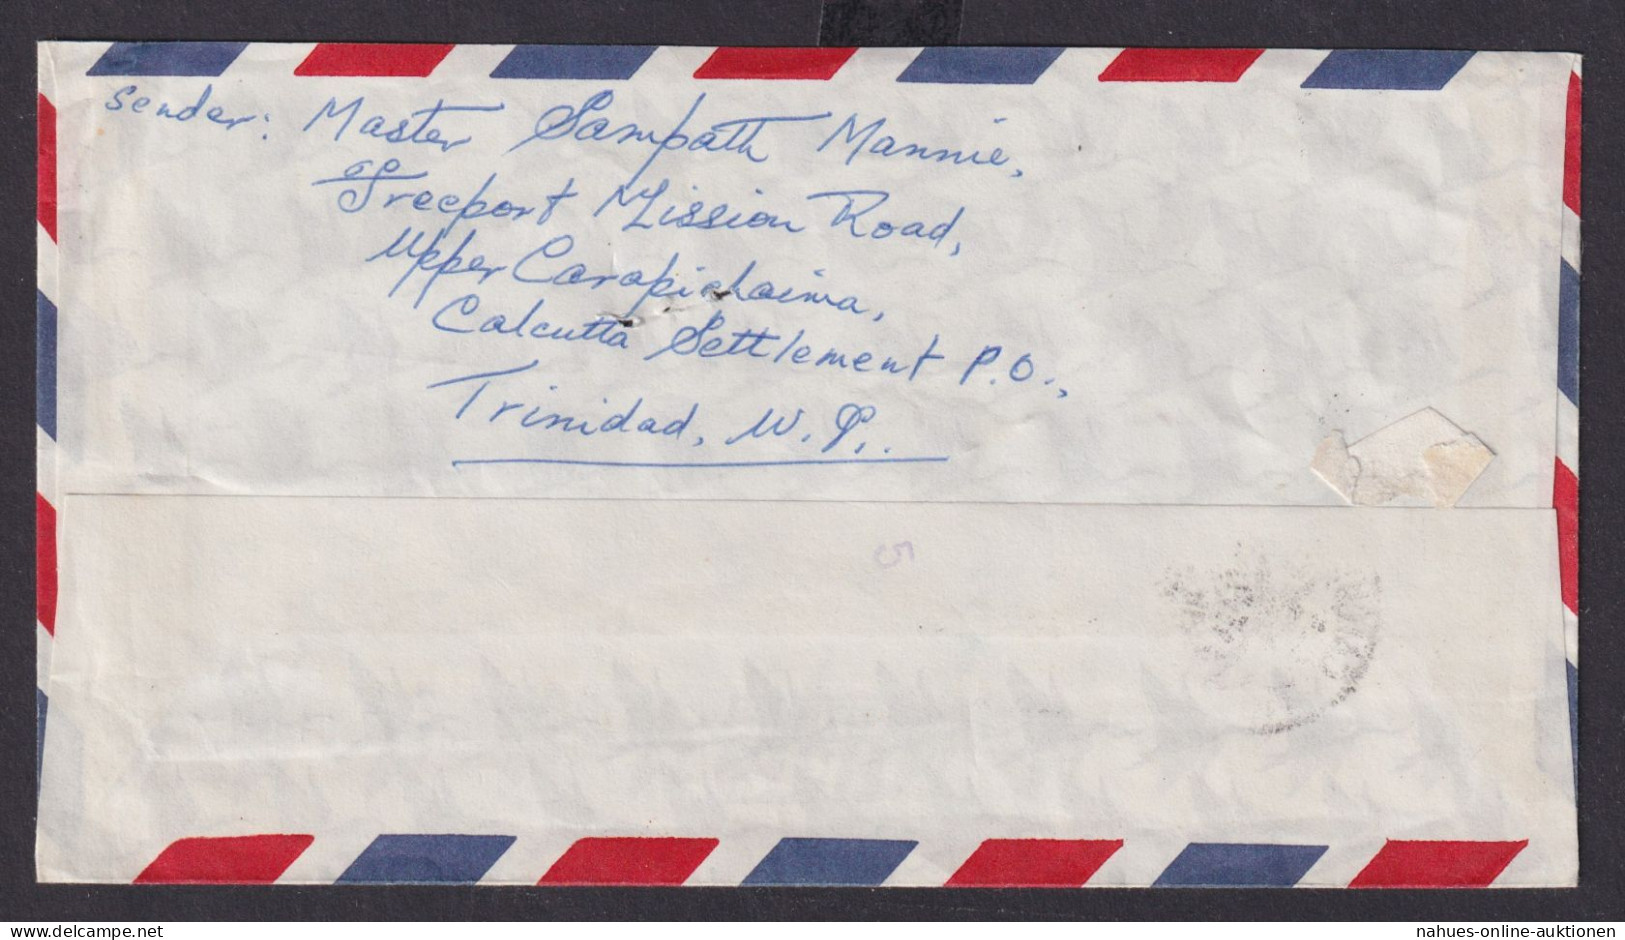 Sender: Master Sampath Mannie,
Freeport Mission Road,
Upper Carapichaima,
Calcutta Settlement P.O.,
Trinidad, W. I..
5
www.delcampe.net
nahues-online-auktionen